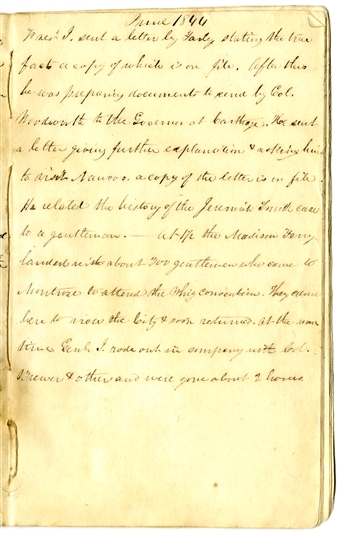 June 1844
sent a letter by Farley stating the true
fact a copy of which is on file. After this
he was preparing documents to send by Col.
Woodworth to the Governor at Carthage. He sent
a letter giving further explanation & asking him
to visit Nauvoo. a copy of the letter is on file.
He related the history of the Jeremiah Smith case
to a gentleman. — at 1/2 the Madison Ferry
landed with about 200 gentlemen who came to
Montrose to attend the Whig convention. They came
here to view the City & soon returned. at the same
time Genl J. rode out in company with Col.
Brewer & others and were gone about 2 hours.